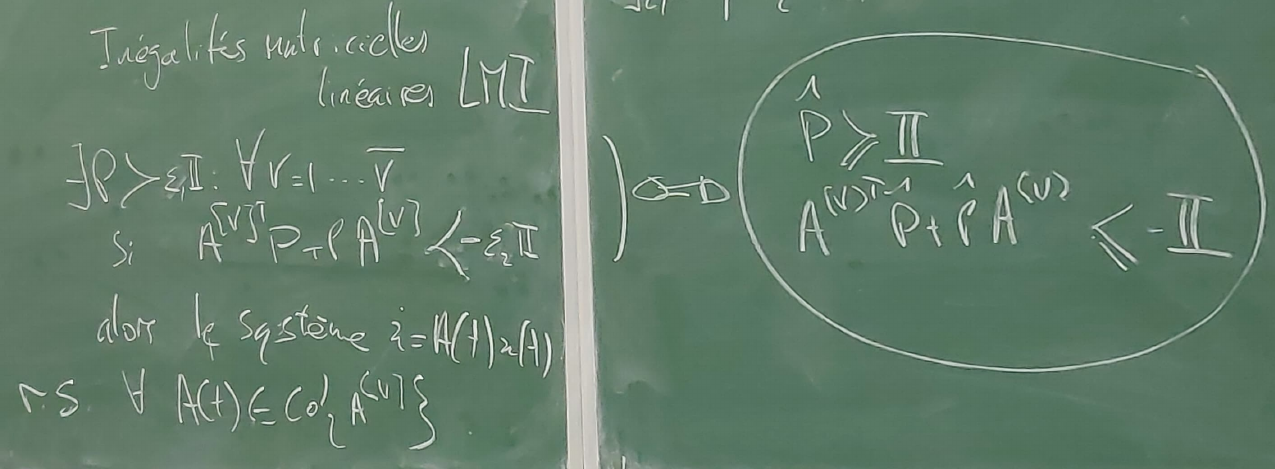 Inégalités matricielles
linéaires LMI
∃P > ε₁𝕀 : ∀ v=1 ... v̄
Si A^[v]ᵀP + PA^[v] < -ε₂𝕀
alors le système ẋ = A(t)x(t)
r.s. ∀ A(t) ∈ Co{A^[v]}
P̂ ⩾ 𝕀
A^(v)ᵀ P̂ + P̂ A^(v) ⩽ -𝕀